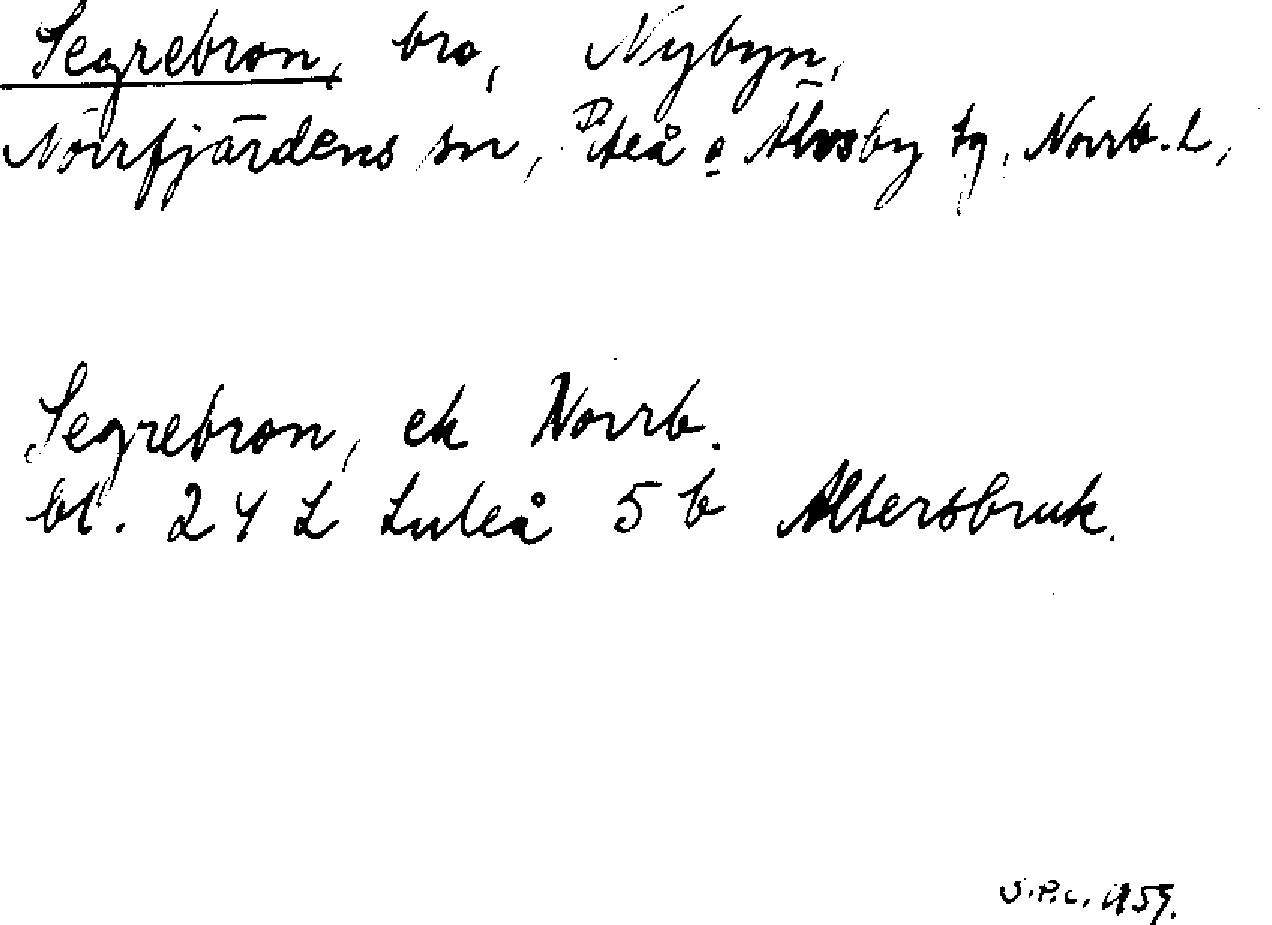 Segrebron, bro, Nybyn,
Norrfjärdens sn, Piteå o Älvsby tg, Norrb. L,
Segrebron, ek Norrb.
bl. 24 L Luleå 5 b Altersbruk.
1959.